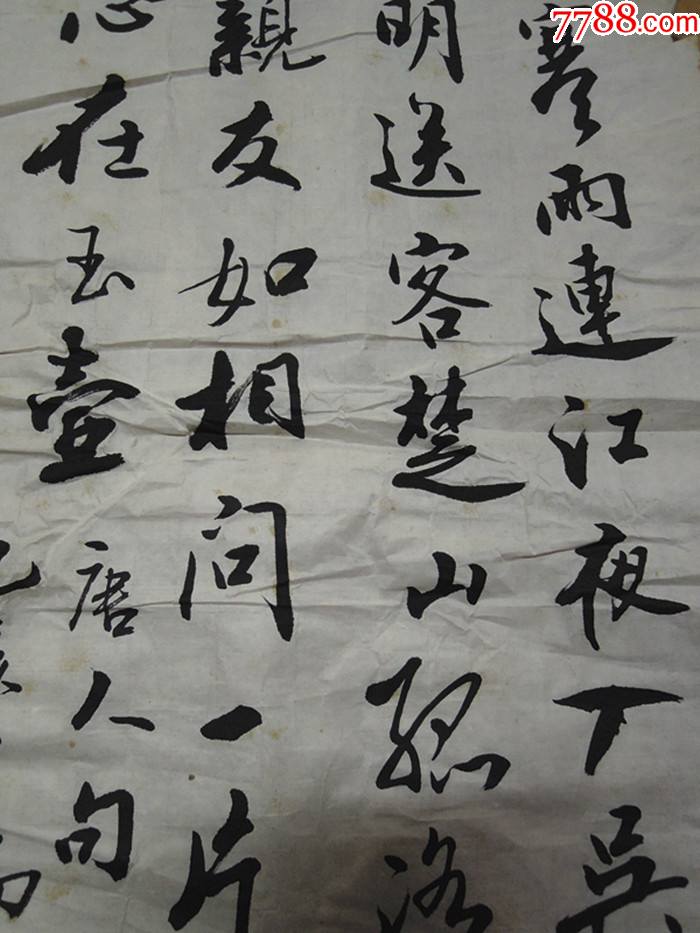 7788.com
中国收藏热线
寒雨連江夜丁吳
明送客楚山孤洛
親友如相問一片
心在玉壺 唐人句